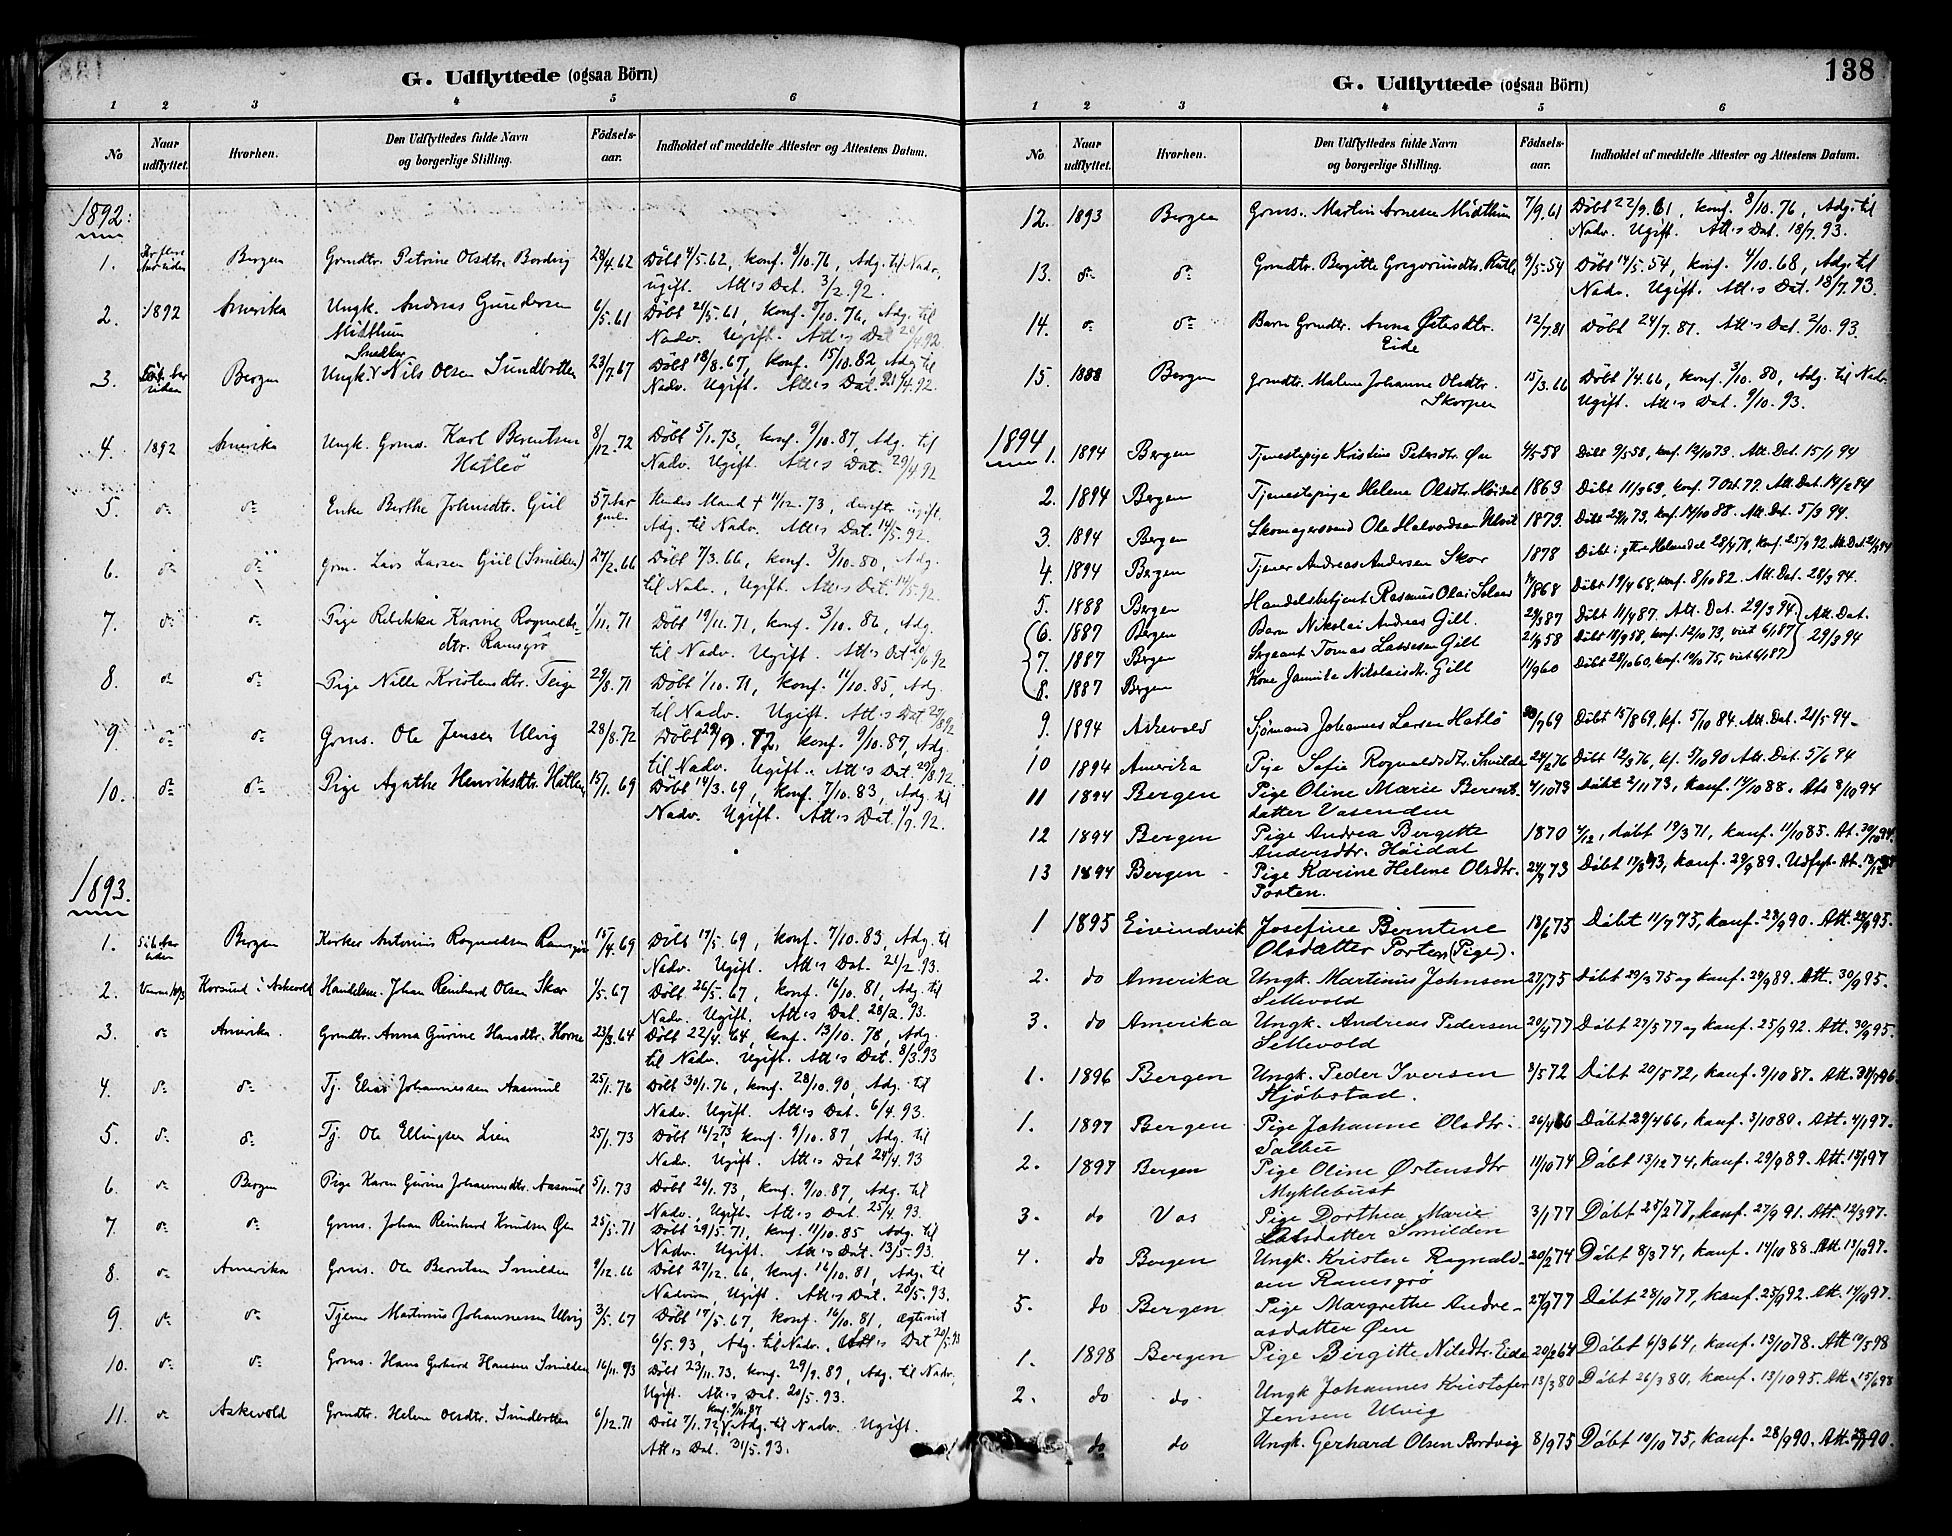 G. Udflyttede (ogsaa Börn)
1 2 3 4 5 6
No
Naar udflyttet.
Hvorhen.
Den Udflyttedes fulde Navn og borgerlige Stilling.
Födsels-aar.
Indholdet af meddelte Attester og Attestens Datum.
1892:
1. Bergen Grmdtr. Petrine Olsdtr. Bordvig 28/4.62 Döbt 4/5.62, konf. 8/10.76, Adg. til Nadv.,
ugift. Att's Dat. 3/2.92.
2. 1892 Amerika Ungk. Andreas Gundersen 6/5.61 Döbt 21/5.61, konf. 8/10.76, Adg. til
Midthun Nadv. Ugift. Att's Dat 20/4.92
Snedker
3. Bergen Ungk. Nils Olsen Sundbotten 23/7.67 Döbt 18/8.67, konf. 15/10.82, Adg. til
Nadv. Ugift. Att's Dat. 21/4.92.
4. 1892 Amerika Ungk. Grms. Karl Berentsen 8/12.72 Döbt 5/1.73, konf. 9/10.87, Adg. til
Hatleö Nadv. Ugift. Att's Dat. 29/4.92
5. do do Enke Berthe Johnsdtr. Giil 57 Aar gml. Hendes Mand † 11/12.73, derefter ugift.
Adg. til Nadv. Att's Dat. 14/5.92.
6. do do Grm. Lars Larsen Giil (Smilden) 27/2.66 Döbt 7/3.66, konf. 3/10.80, Adg.
til Nadv., Ugift. Att's Dat. 14/5.92.
7. do do Pige Rebekka Karine Rognalds- 1/11.71 Döbt 19/11.71, konf. 3/10.86, Adg.
dtr. Ramsgrö til Nadv. Ugift. Att's Dat 20/6.92
8. do do Pige Nille Kristensdtr. Teige 29/8.71 Döbt 1/10.71, konf. 11/10.85, Adg.
til Nadv. Ugift. Att's Dat. 27/8.92
9. do do Grms. Ole Jensen Ulvig 28/8.72 Döbt konf. 9/10.87, Adg.
til Nadv. Ugift. Att's Dat. 29/8.92.
10. do do Pige Agathe Henriksdtr. Hatleö 15/1.69 Döbt 14/3.69, konf. 7/10.83, Adg. til
Nadv. Ugift. Att's Dat. 1/9.92.
1893.
1. Bergen Kirker Antonius Rognaldsen Ramsgrö 15/4.69 Döbt 17/5.69, konf. 7/10.83, Adg. til
Nadv. Ugift. Att's Dat. 21/2.93.
2. Korsund i Askevold Handelsm. Johan Reinhard Olsen Skor 1/5.67 Döbt 26/5.67, konf. 16/10.81, Adg. til
Nadv. Ugift. Att's Dat. 28/2.93.
3. do Amerika. Grmdtr. Anna Gurine Hansdtr. Horne 23/3.64 Döbt 22/4.64, konf. 13/10.78, Adg.
til Nadv. Ugift. Att's Dat. 8/3.93
4. do do Tj. Elias Johannessen Aasmul 25/1.76 Döbt 30/1.76, konf. 28/10.90, Adg. til
Nadv. Ugift. Att's Dat. 6/4.93.
5. do do Tj. Ole Ellingsen Lien 25/1.73 Döbt 16/2.73, konf. 9/10.87, Adg. til
Nadv. Ugift. Att's Dat 24/4.93
6. do Bergen Pige Karen Gurine Johannesdtr. Aasmul 5/1.73 Döbt 26/1.73, konf. 9/10.87, Adg. til
Nadv. Ugift. Att's Dat. 25/4.93.
7. do do Grms. Johan Reinhard Knudsen Öen 25/5.71 Döbt 29/5.71, konf. 11/10.85 Adg. til
Nadv. Ugift. Att's Dat. 13/5.93.
8. do Amerika Grms. Ole Berntsen Smilden 9/12.66 Döbt 27/12.66, konf. 16/10.81, Adg. til
Nadv. Ugift. Att's Dat. 20/5.93.
9. do do Tjener Martinus Johannessen Ulvig 3/5.67 Döbt 17/5.67, konf. 16/10.81, ægteviet
6/5.93, Adg. til Nadv. Att's Dat 20/5.93
10. do do Grms. Hans Gerhard Hansen Smilden 16/11.73 Döbt 23/11.73, konf. 29/9.89, Adg. til Nadv.
Ugift. Att's Dat. 20/5.93.
11. do Askevold Grmdtr. Helene Olsdtr. Sundbotten 6/12.71 Döbt 7/1.72, konf. 9/10.87 Adg. til Nadv. Ugift.
Att's Dat. 31/5.93.
G. Udflyttede (ogsaa Börn)
138
1 2 3 4 5 6
No.
Naar udflyttet.
Hvorhen.
Den Udflyttedes fulde Navn og borgerlige Stilling.
Födsels-aar.
Indholdet af meddelte Attester og Attestens Datum.
12. 1893 Bergen Grms. Martin Arnesen Midthun 7/9.61 Döbt 22/9.61, konf. 8/10.76, Adg. til
Nadv. Ugift. Att's Dat. 18/7.93.
13. do do Grmdtr. Bergitte Gregoriusdtr. Rutle 9/5.54 Döbt 14/5.54, konf. 4/10.68, Adg. til
Nadv. Ugift. Att's Dat. 18/7.93.
14. do do Barn Grmdtr. Anna Östensdtr. 12/7.81 Döbt 24/7.81. Att's Dat. 2/10.93.
Eide
15. 1888 Bergen Grmdtr. Malene Johanne Olsdtr. 15/3.66 Döbt 1/4.66, konf. 3/10.80, Adg. til Nadv.
Skorpen Ugift. Att's Dat. 9/10.93.
1894
1. 1894 Bergen Tjenestepige Kristine Pedersdtr. Öen 4/5 58 Döbt 9/5 58, konf. 12/10 73. Att. Dat. 15/1 94
2. 1894 Bergen Tjenestepige Helene Olsdtr. Höidal 1863 Döbt 11/3 63, konf. 7 Okt. 77. Att. Dat. 14/2 94
3. 1894 Bergen Skomagersvend Ole Halvordsen Ulvik 1873. Döbt 73, konf. 14/10 88. Att. Dat. 5/3 94.
4. 1894 Bergen Tjener Andreas Andersen Skor 1878 Döbt i Holmedal 28/4 78, konf. 25/9 92. Att. Dat. 21/3 94
5. 1888 Bergen Handelsbetjent Rasmus Olai Solnes 1868 Döbt 19/4 68, konf. 8/10 82. Att. Dat. 28/3 94.
6. 1887 Bergen Barn Nikolai Andreas Gill. 87 Döbt 11/4 87. Att. Dat. 29/3 94.
7. 1887 Bergen Sergeant Tomas Lassesen Gill 58 Döbt 58, konf. 12/10 73, viet 6/1 87 Att. Dat. 29/3 94
8. 1887 Bergen Kone Jamila Nikolaisdtr. Gill 11/9 60 Döbt 28/10 60, konf. 10/10 75, viet 6/1 87
9. 1894 Askevold Sjömand Johannes Larsen Hatlö 69 Döbt 15/8 69, kf. 5/10 84. Att. Dat. 21/5 94.
10 1894 Amerika Pige Sofie Rognaldsdtr. Smilden 24/2 76 Döbt 12/3 76, kf. 5/10 90 Att. Dat. 5/6 94
11 1894 Bergen Pige Oline Marie Berent- 4/10 73 Döbt 2/11 73, konf. 14/10 88. Ats 8/10 94
datter Vasenden
12 1894 Bergen Pige Andrea Bergitte 1870 4/12, döbt 19/3 71, konf. 11/10 85. At. 30/10 94.
Andersdtr. Höidal
13 1894 Bergen Pige Karine Helene Olsdtr. 24/7 73 Döbt 17/8 73, konf. 29/9 89. Udflyt. At.
Porten.
1 1895 Eivindvik Josefine Berntine 13/6 75 Döbt 11/7 75, konf. 28/9 90. Att. 28/9 95.
Olsdatter Porten (Pige).
2. do Amerika Ungk. Martinus Johnsen 27/1 75 Döbt 29/3 75 og konf. 29/9 89. Att. 30/9 95.
Sellevold
3. do Amerika Ungk. Andreas Pedersen 20/4 77 Döbt 27/5 77 og konf. 25/9 92. Att. 30/9 95.
Sellevold
1. 1896 Bergen Ungk. Peder Iversen 3/5 72 Döbt 20/5 72, konf. 9/10 87. Att. 96.
Kjöbstad.
1. 1897 Bergen Pige Johanne Olsdtr. 26/4 66 Döbt 29/4 66, konf. 3/10 80. Att. 4/1 97.
Salbu
2. 1897 Bergen Pige Oline Östensdtr 11/10 74 Döbt 13/12 74, konf. 29/9 89. Att. 15/1 97
Myklebust
3. do Vos Pige Dorthea Marie 3/1 77 Döbt 25/2 77, konf. 27/9 91. Att. 12/3 97.
Larsdatter Smilden
4. do Bergen Ungk. Kristen Ragnald- 20/2 74 Döbt 8/3 74, konf. 14/10 88. Att. 13/10 97.
sen Ramsgrö
5. do Bergen Pige Margrethe Andre- 27/9 77 Döbt 28/10 77, konf. 25/9 92. Att. 14/10 97.
asdatter Öen
1. 1898 Bergen Pige Birgitte Nilsdtr. Eide 20/2 64 Döbt 6/3 64, konf. 13/10 78. Att 14/5 98
2. do do. Ungk Johannes Kristofer 13/3 80 Döbt 26/3 80, konf. 13/10 95. Att. 15/6 98
Jensen Ulvig
do do Ungk. Gerhard Olsen Bordvig 8/9 75 Döbt 10/10 75, konf. 28/9 90. Att. 90.